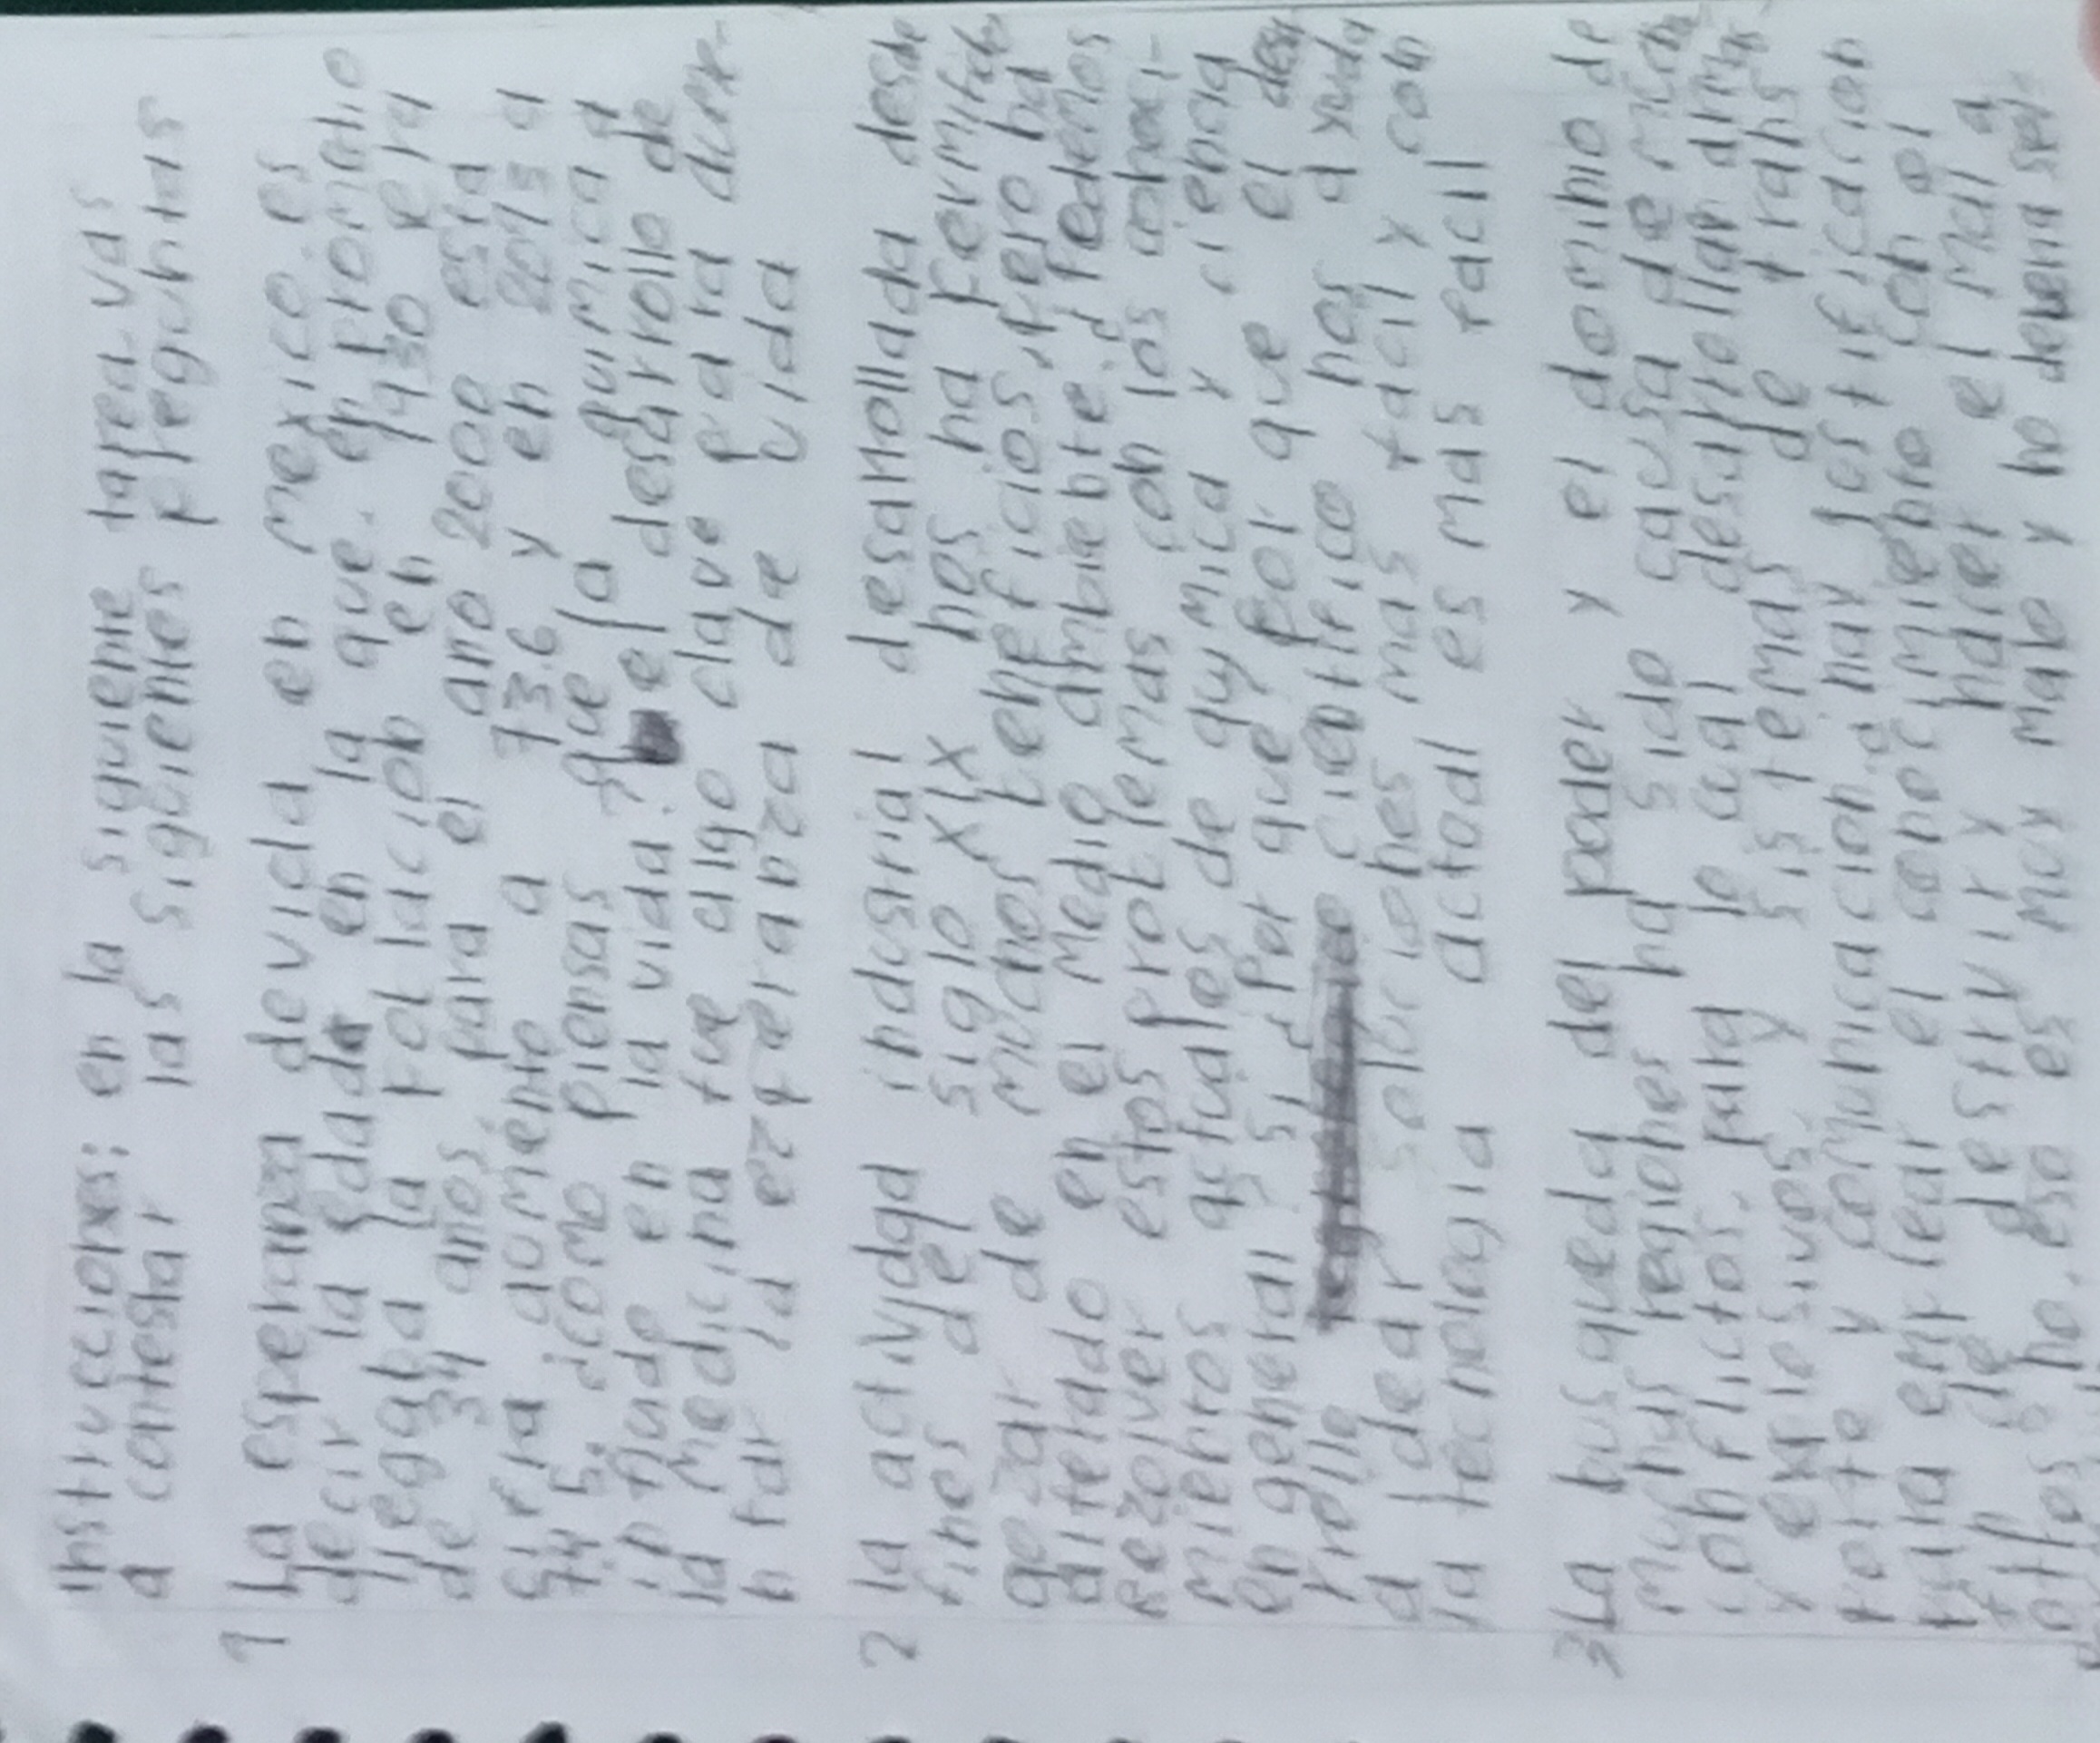 instrucciones: en la siguiente tarea vas
a contestar las siguientes preguntas
1 La esperanza de vida en mexico. es
decir la edad en la que. en promedio
llegaba la poblacion en 1930 era
de 34 años para el año 2000 esta
cifra aumento a 73.6 y en 2013 a
74.5. ¿como piensas que la quimica a
influido en la vida? el desarrollo de
la medicina fue algo clave para aume-
ntar la ezperanza de vida
2 la actividad industrial desarrollada desde
fines del siglo XIX nos ha permitido
gozar de muchos beneficios, pero ha
alterado en el medio ambiente. ¿Podemos
rezolver estos problemas con los conoci-
mientos actuales de quymica y ciencia
en general si ¿Por que? por que el desa
rrollo cientifico nos ayuda
a idear soluciones mas facil y con
la tecnologia actual es mas facil
3 La busqueda del poder y el dominio de
muchas regiones ha sido causa de muchos
conflictos, para lo cual desarrollan armas
y explosivos, y sistemas de trans-
porte y comunicacion. ¿hay justificacion
para emplear el conocimiento con el
fin de destruir y hacer el mal a
otros? no. eso es muy malo y no deveria ser